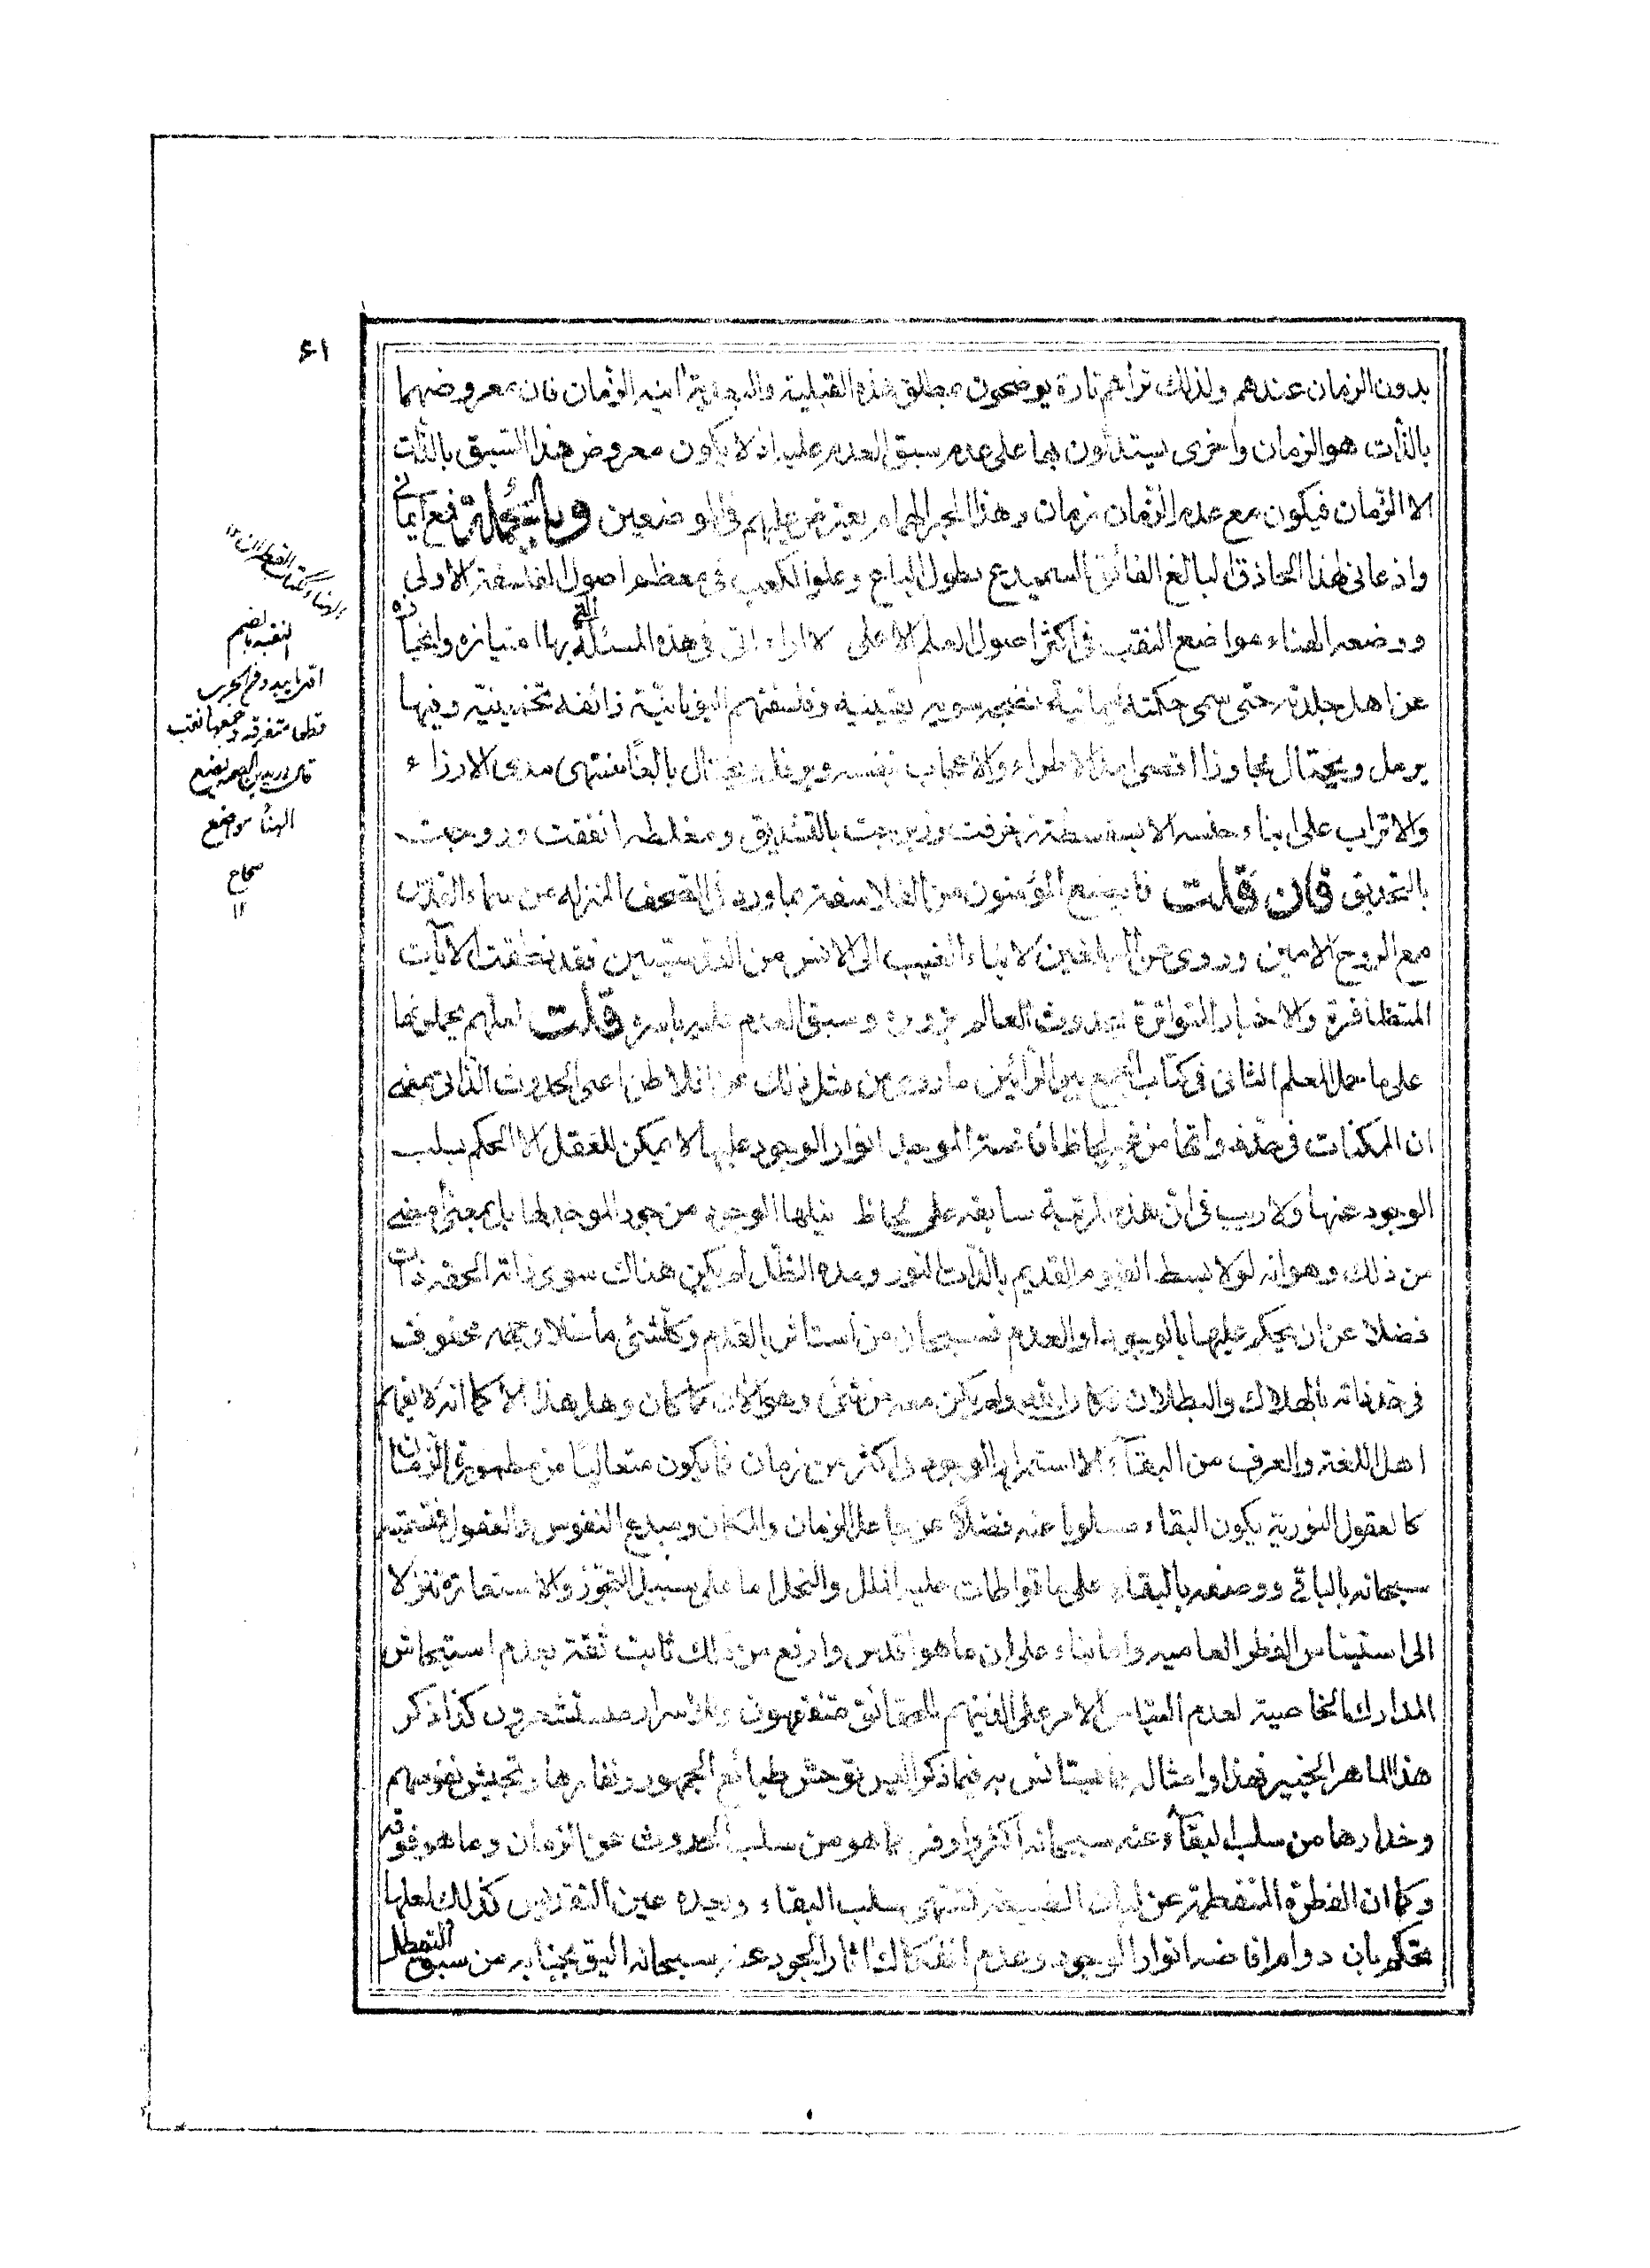 ٦١
بدون الزمان عندهم ولذلك تراهم تارة يوضحون بمطلق هذه القبلية والبعدية انية الزمان فان معروضهما
بالذات هو الزمان واخرى يستدلون بها على عدم سبق العدم عليه اذ لا يكون معروض هذا السبق بالذات
الا الزمان فيكون مع عدم الزمان زمان وهذا الحبر الهمام يعترض عليهم فى الموضعين وبالجملة فمع ايمانى
واذعانى لهذا الحاذق البالغ الفائق السميدع بطول الباع وعلو الكعب فى معظم اصول الفلسفة الاولى
ووضعه الهناء مواضع النقب فى اكثر اصول العلم الاعلى لا اراه اتى فى هذه المسئلة التى بها امتيازه وانحيازه
عن اهل جلدته حتى سمى حكمته ايمانية نضيجة سوية يقينية وفلسفتهم اليونانية زائفه تخمينية وفيها
يرمل ويختال مجاوزا اقصى امد الاطراء والاعجاب بنفسه ويرفل بالغا منتهى مدى الازراء
والاتراب على ابناء جنسه الا بسفسطة زخرفت وزبرجت بالتشديق ومغلطه انفقت وروجت
بالتخريق فان قلت فما يصنع المؤمنون من الفلاسفة بما ورد فى الصحف المنزلة من سماء القدس
مع الروح الامين وروى عن المبلغين لانباء الغيب الى الانس من القديسين فقد نطقت الآيات
المتظافرة والاخبار المتواترة بحدوث العالم وسبق العدم عليه باسره قلت لعلهم يحملونها
على ما حمل المعلم الثانى فى كتاب الجمع بين الرأيين ما روى من مثل ذلك عن افلاطن اعنى الحدوث الذاتى بمعنى
ان الممكنات فى حد ذواتها من غير لحاظ افاضة الموجد انوار الوجود عليها لا يمكن للعقل الا الحكم بسلب
الوجود عنها ولا ريب فى ان هذه المرتبة سابقة على لحاظ نيلها الوجود من جود الموجد لها بل بمعنى امضى
من ذلك وهو انه لولا بسط القيوم القديم بالذات النور ومده الظل لم يكن هناك سوى ذاته الحقه ذات
فضلا عن ان يحكم عليها بالوجود او العدم فسبحان من استاثر بالقدم وكل شئ ما خلا وجهه محفوف
فى حد ذاته بالهلاك والبطلان فكان الله ولم يكن معه من شئ وهو الآن كما كان وهل هذا الا كما انه لا يفهم
اهل اللغة والعرف من البقاء الا استمرار الوجود فى اكثر من زمان فما يكون متعاليا من الزمان
كالعقول النورية يكون البقاء مسلوبا عنه فضلا عن جاعل الزمان والمكان ومبدع النفوس والعقول فتسميته
سبحانه بالباقى ووصفه بالبقاء على ما تواطات عليه الملل والنحل اما على سبيل التجوز والاستعارة تنزلا
الى استيناس الفطر العامية واما بناء على ان ما هو اقدس وارفع من ذلك ثابت ثقة بعدم استيحاش
المدارك الخاصية لعدم التباس الامر على الذين هم للحقائق متفقهون وللاسرار مستشعرون كذا ذكر
هذا الماهر الخبير فهذا وامثاله مما يستانس به فيما ذكر اليس توحش طبائع الجمهور ونفارها وتجيش نفوسهم
وخدارها من سلب البقاء عنه سبحانه اكثر واوفر مما هو من سلب الحدوث عن الزمان وما هو فوقه
وكما ان الفطرة المنفطمة عن لبان الطبيعة تشتهى سلب البقاء وتجده عين التقديس كذلك لعلها
تحكم بان دوام افاضه انوار الوجود وعدم انفكاك اثار الجود عنه سبحانه اليق بجنابه من سبق التعطل
الهناء ككتاب القطران ١٢
النقبه بالضم
اول ما يبدو من الجرب
قطعا متفرقه وجمعها نقب
قال دريد بن الصمه يضع
الهناء مواضع
صحاح
١٢